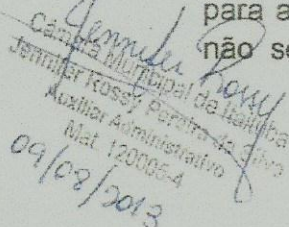 para a
não se
Jennifer Rossy
Câmara Municipal de Itaituba
Jennifer Rossy Pereira da Silva
Auxiliar Administrativo
Mat. 120006-4
09/08/2013